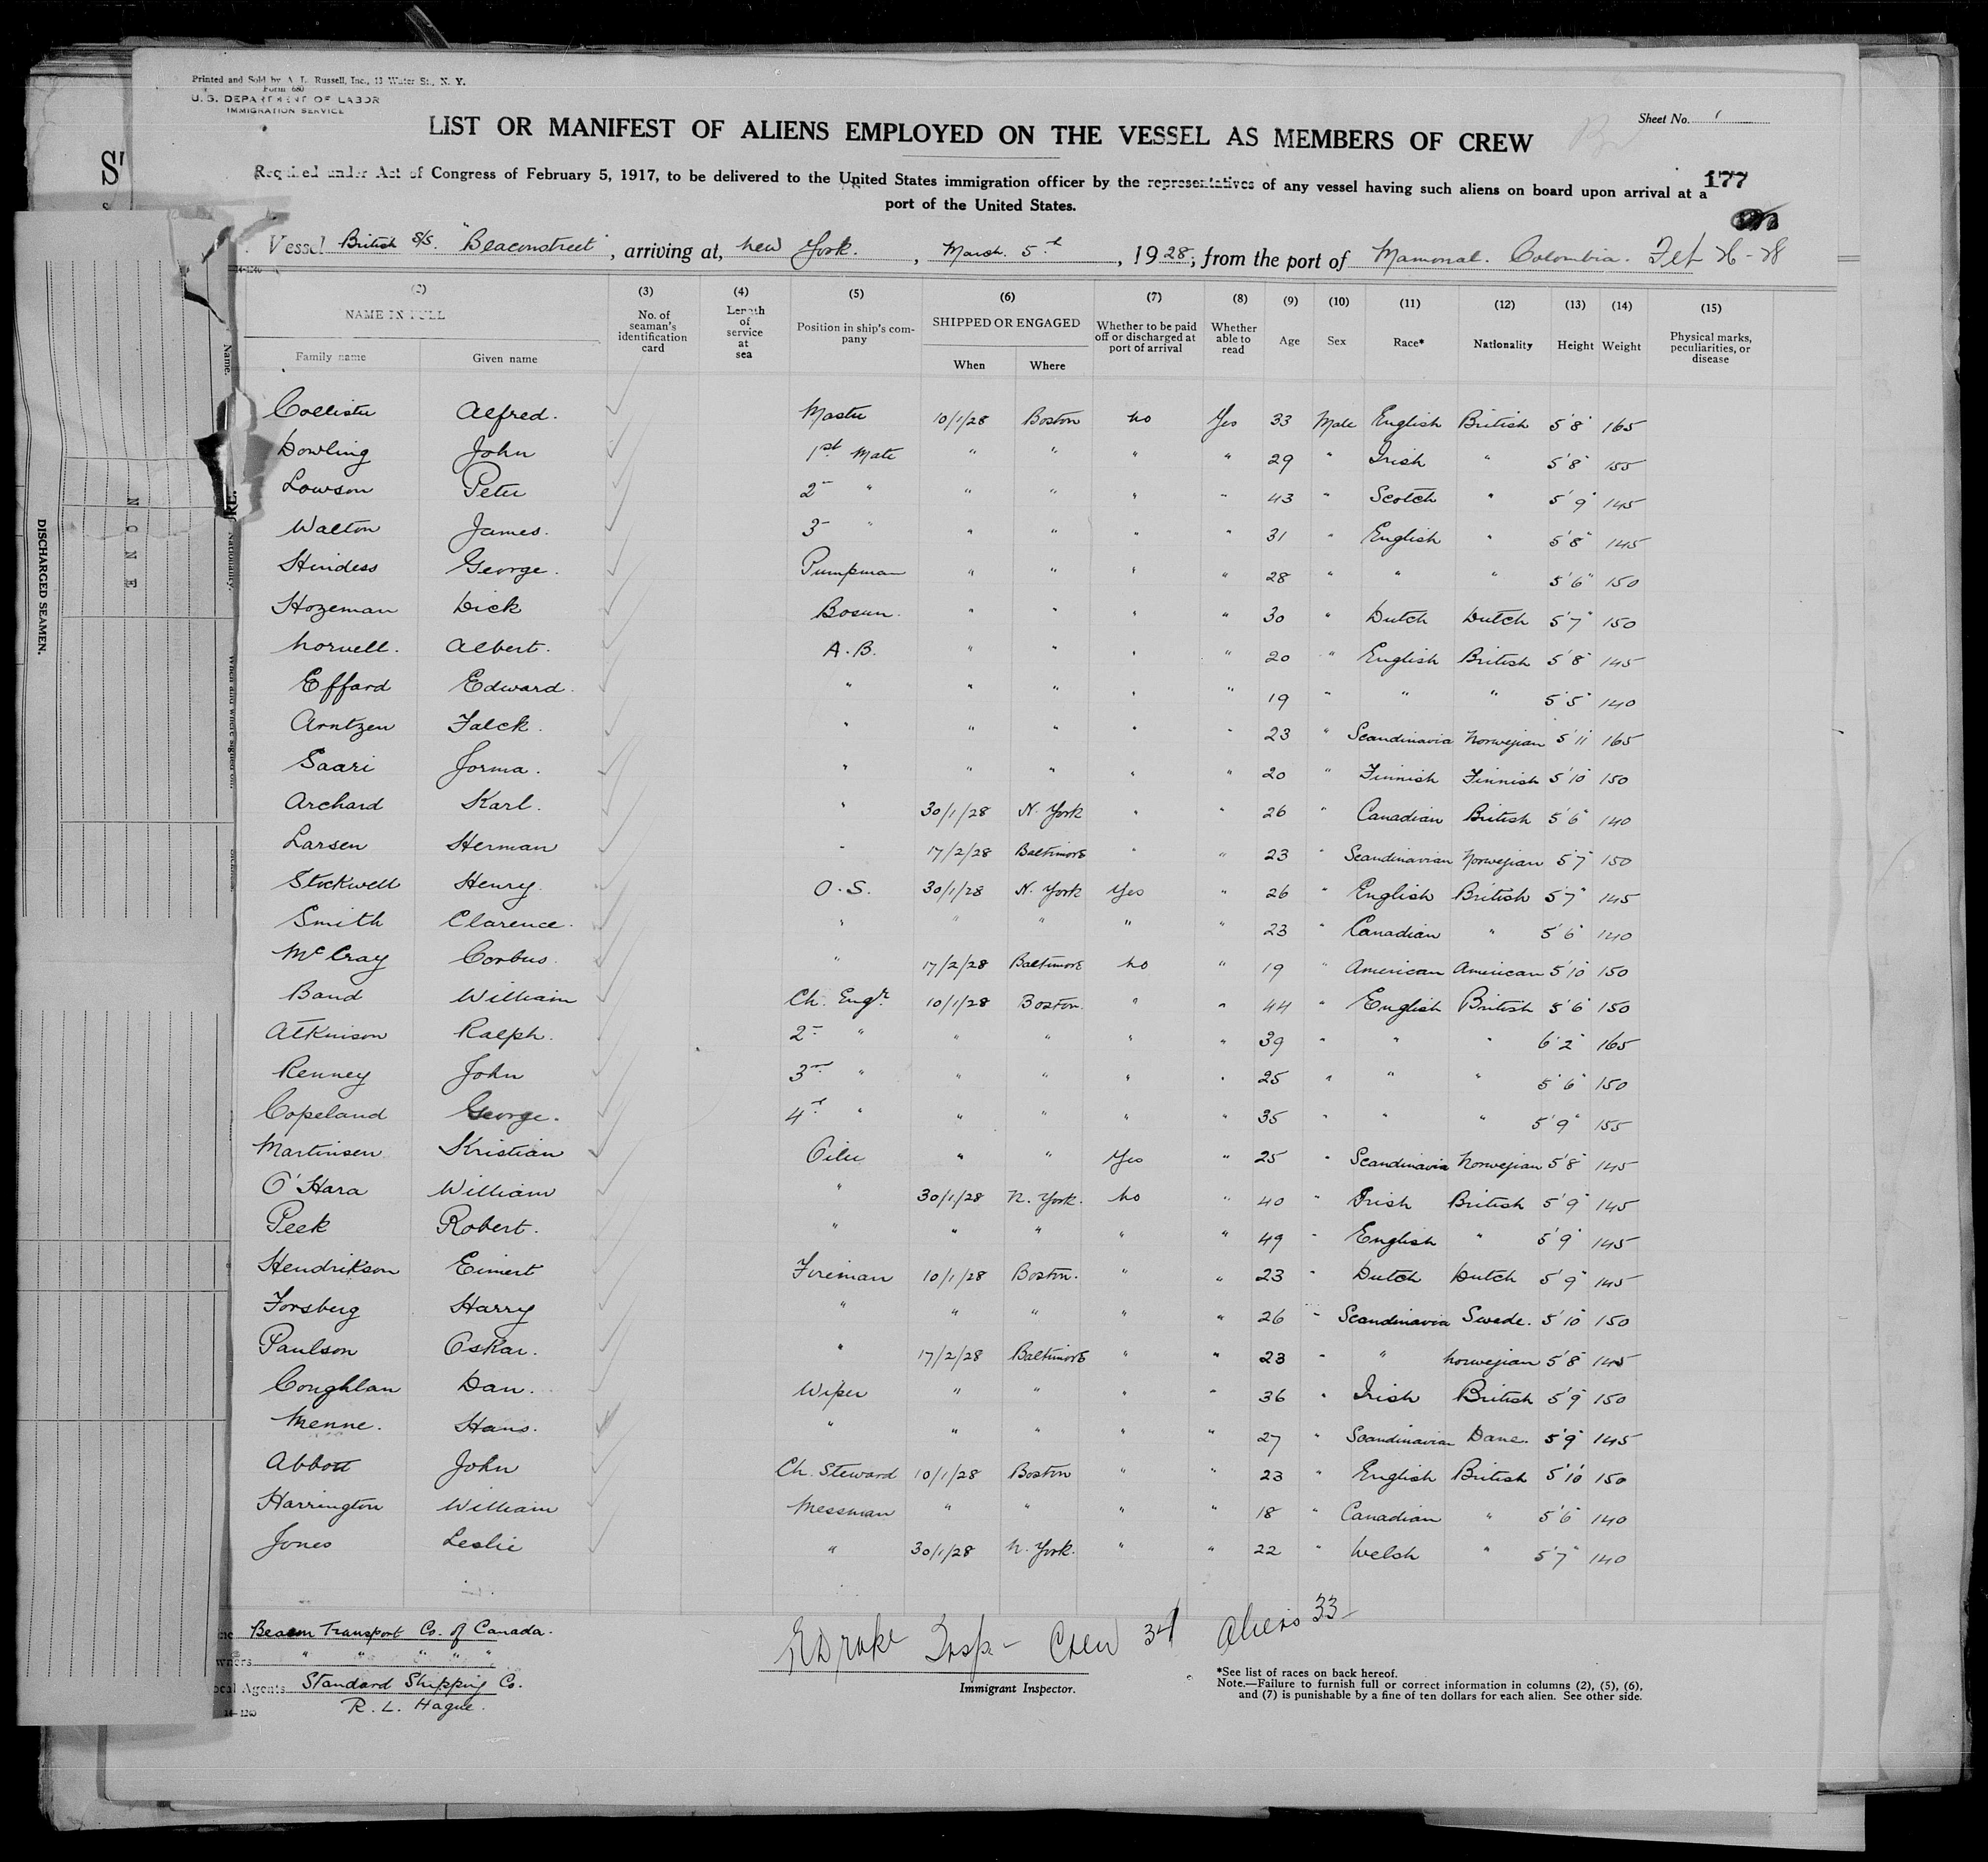 Printed and Sold by A. L. Russell, Inc., 13 Water St., N. Y.
Form 680
U. S. DEPARTMENT OF LABOR
IMMIGRATION SERVICE
Sheet No. 1
LIST OR MANIFEST OF ALIENS EMPLOYED ON THE VESSEL AS MEMBERS OF CREW
Required under Act of Congress of February 5, 1917, to be delivered to the United States immigration officer by the representatives of any vessel having such aliens on board upon arrival at a
port of the United States.
177
Vessel British S/S. "Beaconstreet", arriving at, New York. , March. 5th , 1928, from the port of Mamonal. Colombia. Feb 26-28
(2) (3) (4) (5) (6) (7) (8) (9) (10) (11) (12) (13) (14) (15)
NAME IN FULL No. of seaman's identification card Length of service at sea Position in ship's company SHIPPED OR ENGAGED Whether to be paid off or discharged at port of arrival Whether able to read Age Sex Race* Nationality Height Weight Physical marks, peculiarities, or disease
Family name Given name When Where
Collister Alfred. Master 10/1/28 Boston No Yes 33 Male English British 5'8" 165
Dowling John 1st Mate " " " " 29 " Irish " 5'8" 155
Lowson Peter 2 " " " " " 43 " Scotch " 5'9" 145
Walton James. 3 " " " " " 31 " English " 5'8" 145
Hindess George. Pumpman " " " " 28 " " " 5'6" 150
Hozeman Dick Bosun. " " " " 30 " Dutch Dutch 5'7" 150
Norvell. Albert. A.B. " " " " 20 " English British 5'8" 145
Effard Edward. " " " " " 19 " " " 5'5" 140
Arntzen Falck. " " " " " 23 " Scandinavia Norwejian 5'11 165
Saari Jorma. " " " " " 20 " Finnish Finnish 5'10" 150
Archard Karl. " 30/1/28 N. York " " 26 " Canadian British 5'6" 140
Larsen Herman " 17/2/28 Baltimore " " 23 " Scandinavian Norwejian 5'7" 150
Stockwell Henry. O.S. 30/1/28 N. York Yes " 26 " English British 5'7" 145
Smith Clarence. " " " " " 23 " Canadian " 5'6" 140
McCray Corbus. " 17/2/28 Baltimore No " 19 " American American 5'10" 150
Band William Ch. Engr. 10/1/28 Boston. " " 44 " English British 5'6" 150
Atkinson Ralph. 2 " " " " " 39 " " " 6'2" 165
Renney John 3 " " " " " 25 " " " 5'6" 150
Copeland George. 4 " " " " " 35 " " " 5'9" 155
Martinsen Kristian Oiler " " Yes " 25 " Scandinavia Norwejian 5'8" 145
O'Hara William " 30/1/28 N. York. No " 40 " Irish British 5'9" 145
Peek Robert. " " " " " 49 " English " 5'9" 145
Hendrikson Eimert Fireman 10/1/28 Boston. " " 23 " Dutch Dutch 5'9" 145
Forsberg Harry " " " " " 26 " Scandinavia Swede. 5'10" 150
Paulson Oskar. " 17/2/28 Baltimore " " 23 " " Norwejian 5'8" 145
Coughlan Dan. Wiper " " " " 36 " Irish British 5'9" 150
Menne. Hans. " " " " " 27 " Scandinavian Dane. 5'9" 145
Abbott John Ch. Steward 10/1/28 Boston " " 23 " English British 5'10" 150
Harrington William Messman " " " " 18 " Canadian " 5'6" 140
Jones Leslie " 30/1/28 N. York. " " 22 " Welsh " 5'7" 140
Beacon Transport Co. of Canada.
wners " " " " "
ocal Agents Standard Shipping Co.
R. L. Hague.
14-1240
EDrake Insp - Crew 34 Aliens 33
Immigrant Inspector.
*See list of races on back hereof.
Note.—Failure to furnish full or correct information in columns (2), (5), (6),
and (7) is punishable by a fine of ten dollars for each alien. See other side.
DISCHARGED SEAMEN.
NONE
Name.
Nationality.